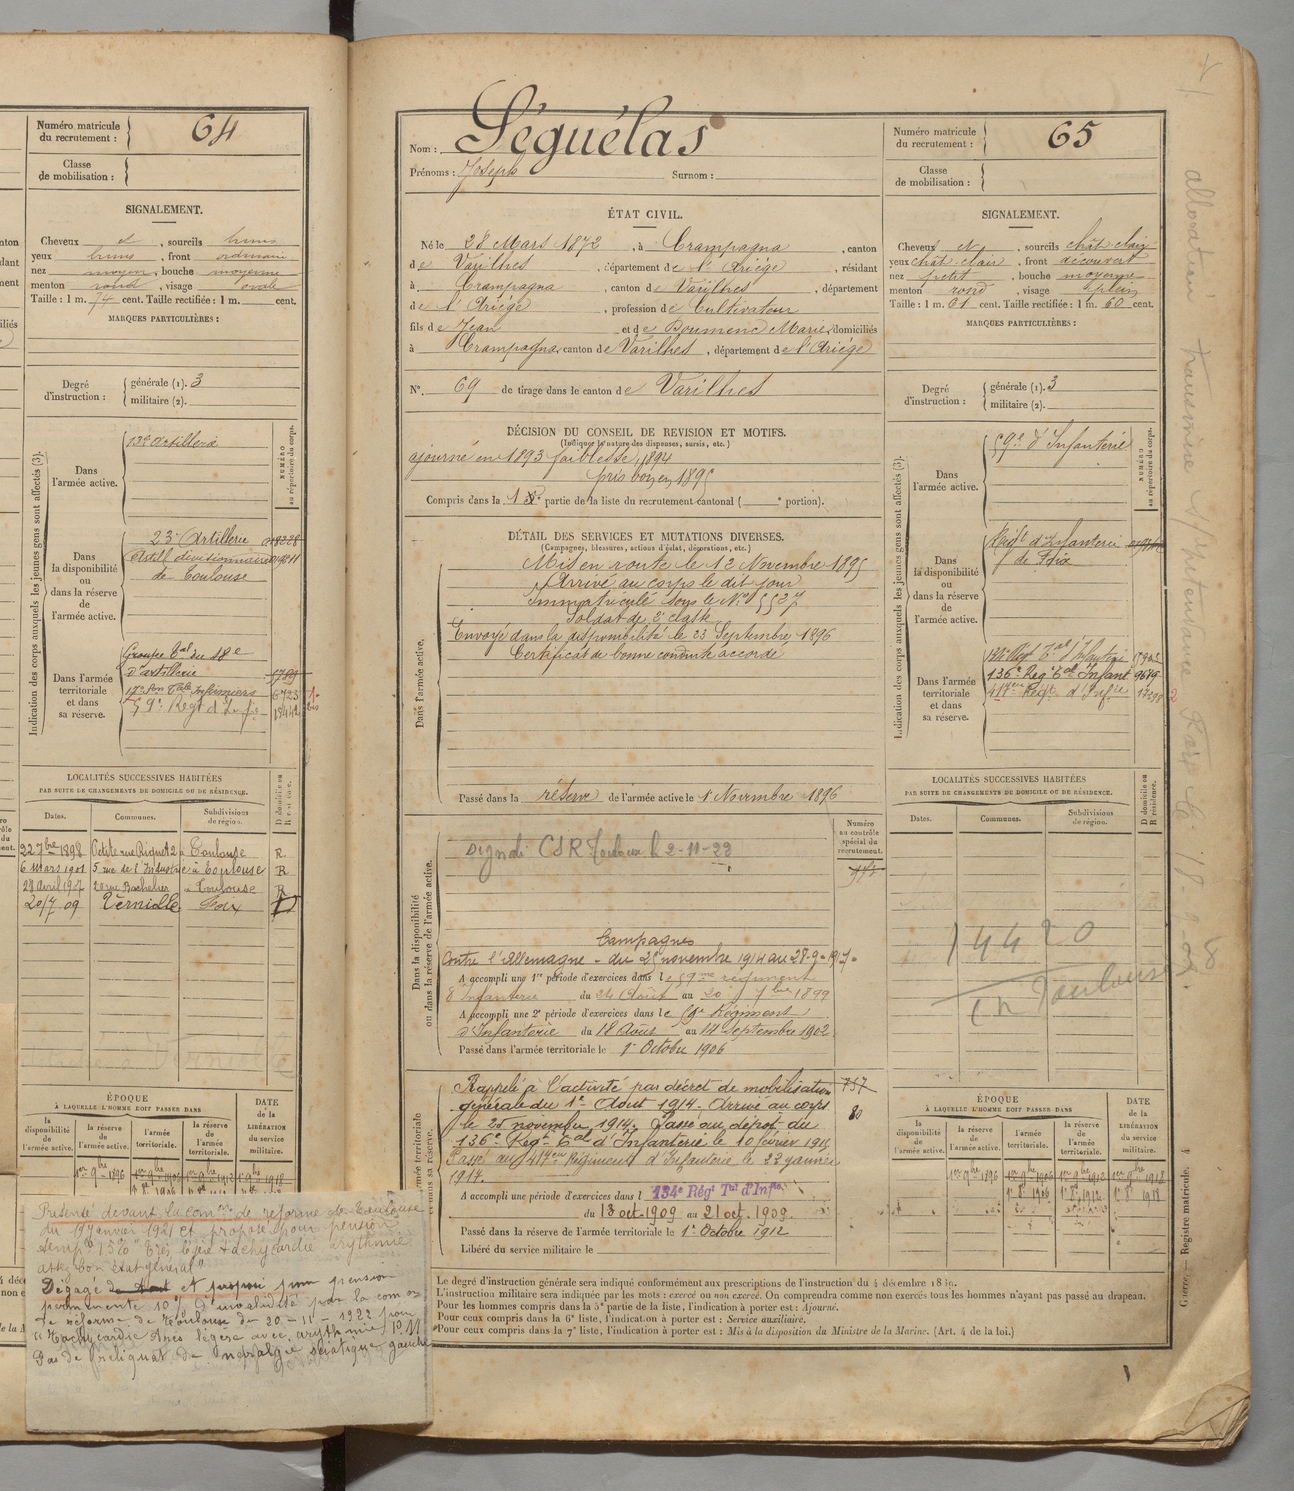 Numéro matricule du recrutement : 64
Classe de mobilisation :
SIGNALEMENT.
Cheveux et , sourcils bruns
yeux bruns , front ordinaire
nez moyen , bouche moyenne
menton rond , visage ovale
Taille : 1 m. 74 cent. Taille rectifiée : 1 m. cent.
MARQUES PARTICULIÈRES :
Degré d'instruction :
générale (1). 3
militaire (2).
Indication des corps auxquels les jeunes gens sont affectés (3).
NUMÉRO au répertoire du corps.
Dans l'armée active.
13e Artillerie
Dans la disponibilité ou dans la réserve de l'armée active.
23e Artillerie
Artill divisionnaire
de Toulouse
Dans l'armée territoriale et dans sa réserve.
Groupe Tal du 18e
d'artillerie
17e Son Tale Infirmiers 6723
59e Régt d'Infie 18442
LOCALITÉS SUCCESSIVES HABITÉES
PAR SUITE DE CHANGEMENTS DE DOMICILE OU DE RÉSIDENCE.
Dates. Communes. Subdivisions de région. D domicile ou R résidence.
22 7bre 1898 Petite rue Riquet 2 à Toulouse R.
6 Mars 1901 5 rue de l'Industrie à Toulouse R
28 Avril 1907 20 rue Bachelier à Toulouse R
20/7 09 Verniolle Foix D
ÉPOQUE
À LAQUELLE L'HOMME DOIT PASSER DANS
DATE de la LIBÉRATION du service militaire.
la disponibilité de l'armée active.
la réserve de l'armée active.
l'armée territoriale.
la réserve de l'armée territoriale.
1er 9bre 1896 1er 9bre 1906 1er 9bre 1912 1er 9bre 1918
Présenté devant la comon de réforme de Toulouse
du 19 janvier 1921 et proposé pour pension
temp 15% "Très légère tachycardie arythmie
bon état général"
Dégagé et proposé pour pension
permanente 10% d'invalidité par la comon
de réforme de Toulouse du 20-11-1922 pour
"Tachycardie très légère avec arythmie
Pas de reliquat de névralgie sciatique gauche
Nom : Séguélas
Prénoms : Joseph Surnom :
ÉTAT CIVIL.
Né le 28 Mars 1872 , à Crampagna , canton
de Varilhes , département de l'Ariége , résidant
à Crampagna , canton de Varilhes , département
de l'Ariége , profession de Cultivateur
fils de Jean et de Doumenc Marie, domiciliés
à Crampagna, canton de Varilhes , département de l'Ariége
N°. 69 de tirage dans le canton de Varilhes
DÉCISION DU CONSEIL DE REVISION ET MOTIFS.
(Indiquer la nature des dispenses, sursis, etc.)
ajourné en 1893 faiblesse, 1894
pris bon en 1895
Compris dans la 1e partie de la liste du recrutement cantonal ( e portion).
DÉTAIL DES SERVICES ET MUTATIONS DIVERSES.
(Campagnes, blessures, actions d'éclat, décorations, etc.)
Dans l'armée active.
Mis en route le 12 Novembre 1895
Arrivé au corps le dit jour
Immatriculé sous le N° 5527
Soldat de 2e classe
Envoyé dans la disponibilité le 23 Septembre 1896
Certificat de bonne conduite accordé
Passé dans la réserve de l'armée active le 1er Novembre 1896
Dans la disponibilité ou dans la réserve de l'armée active.
Numéro au contrôle spécial du recrutement.
CSR Toulouse le 2-11-22
Campagnes
Contre l'Allemagne - du 25 novembre 1914 au 28-9-1917.
A accompli une 1re période d'exercices dans le 59me régiment
d'Infanterie du 24 Août au 20 7bre 1899
A accompli une 2e période d'exercices dans le 59e Régiment
d'Infanterie du 18 Août au 14 Septembre 1902
Passé dans l'armée territoriale le 1er Octobre 1906
Rappelé à l'activité par décret de mobilisation
générale du 1er Août 1914. Arrivé au corps
le 25 novembre 1914. Passé au dépôt du
136e Régt Tal d'Infanterie le 10 février 1915.
Passé au 417eme Régiment d'Infanterie le 22 janvier
1917.
757
80
A accompli une période d'exercices dans l 134e Régt Tal d'Infie
du 13 oct. 1909 au 21 oct. 1909.
Passé dans la réserve de l'armée territoriale le 1er Octobre 1912
Libéré du service militaire le
Le degré d'instruction générale sera indiqué conformément aux prescriptions de l'instruction du 4 décembre 1889.
L'instruction militaire sera indiquée par les mots : exercé ou non exercé. On comprendra comme non exercés tous les hommes n'ayant pas passé au drapeau.
Pour les hommes compris dans la 5e partie de la liste, l'indication à porter est : Ajourné.
Pour ceux compris dans la 6e liste, l'indication à porter est : Service auxiliaire.
Pour ceux compris dans la 7e liste, l'indication à porter est : Mis à la disposition du Ministre de la Marine. (Art. 4 de la loi.)
Numéro matricule du recrutement : 65
Classe de mobilisation :
SIGNALEMENT.
Cheveux et , sourcils chât-clair
yeux chât-clair , front découvert
nez petit , bouche moyenne
menton rond , visage plein
Taille : 1 m. 61 cent. Taille rectifiée : 1 m. 60 cent.
MARQUES PARTICULIÈRES :
Degré d'instruction :
générale (1). 3
militaire (2).
Indication des corps auxquels les jeunes gens sont affectés (3).
NUMÉRO au répertoire du corps.
Dans l'armée active.
59e d'Infanterie
Dans la disponibilité ou dans la réserve de l'armée active.
Régt d'Infanterie
de Foix
Dans l'armée territoriale et dans sa réserve.
134e Régt Tal d'Infanterie
136e Régt Tal d'Infant 9679
417eme Régt d'Infie
LOCALITÉS SUCCESSIVES HABITÉES
PAR SUITE DE CHANGEMENTS DE DOMICILE OU DE RÉSIDENCE.
Dates. Communes. Subdivisions de région. D domicile ou R résidence.
14420
CR Toulouse
ÉPOQUE
À LAQUELLE L'HOMME DOIT PASSER DANS
DATE de la LIBÉRATION du service militaire.
la disponibilité de l'armée active.
la réserve de l'armée active.
l'armée territoriale.
la réserve de l'armée territoriale.
1er 9bre 1896 1er 9bre 1906 1er 9bre 1912 1er 9bre 1918
1er 8e 1906 1er 8e 1912 1er 8e 1918
Guerre. — Registre matricule. 4
allocation transmise s/Intendance Foix